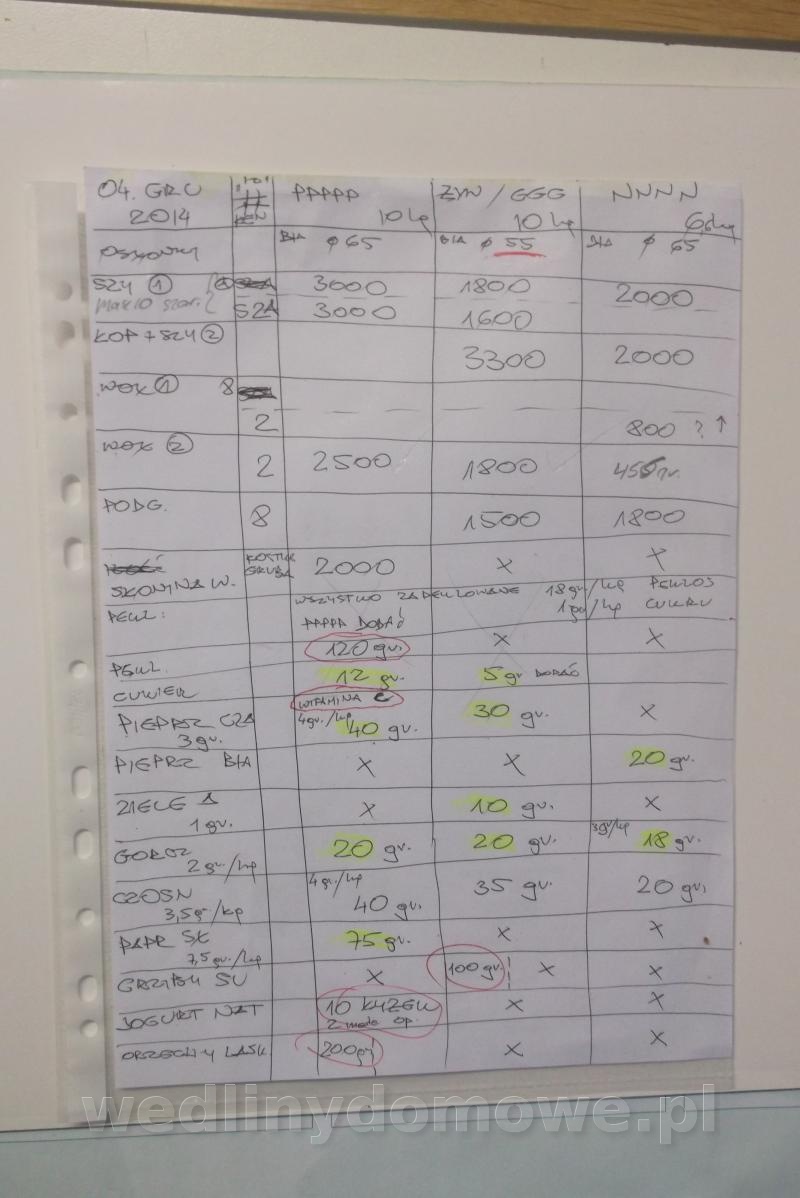 04. GRU 2014 PPPPP 10 kg ŻYW / GGG 10 kg NNNN 6 kg
OSŁONKI BIA φ 65 BIA φ 55 BIA φ 65
SZY ① 3000 1800 2000
SZA 3000 1600
KOP + SZY ② 3300 2000
WOŁ ① 8
2 800 ? ↑
WOŁ ② 2 2500 1800
PODG. 8 1500 1800
SKONINA W. KOSTKA GRUBA 2000 x x
PEKL: WSZYSTKO ZAPEKLOWANE 18 gr/kg PEKLOS
1 gr/kg CUKRU
PPPPP DODAĆ!
PEKL. 120 gr. x x
CUKIER 12 gr. 5 gr DODAĆ
WITAMINA C
PIEPRZ CZA 4 gr./kg 40 gr. 30 gr. x
3 gr.
PIEPRZ BIA x x 20 gr.
ZIELE A x 10 gr. x
1 gr.
GORCZ 20 gr. 20 gr. 3 gr/kg 18 gr.
2 gr/kg
CZOSN 4 gr/kg 40 gr. 35 gr. 20 gr.
3,5 gr/kg
PAPR SŁ 75 gr. x x
7,5 gr./kg
GRZYBY SU x 100 gr. x x
JOGURT NAT 10 ŁYŻEK x x
2 małe op.
ORZECHY LASK 200 gr x x
wedlinydomowe.pl